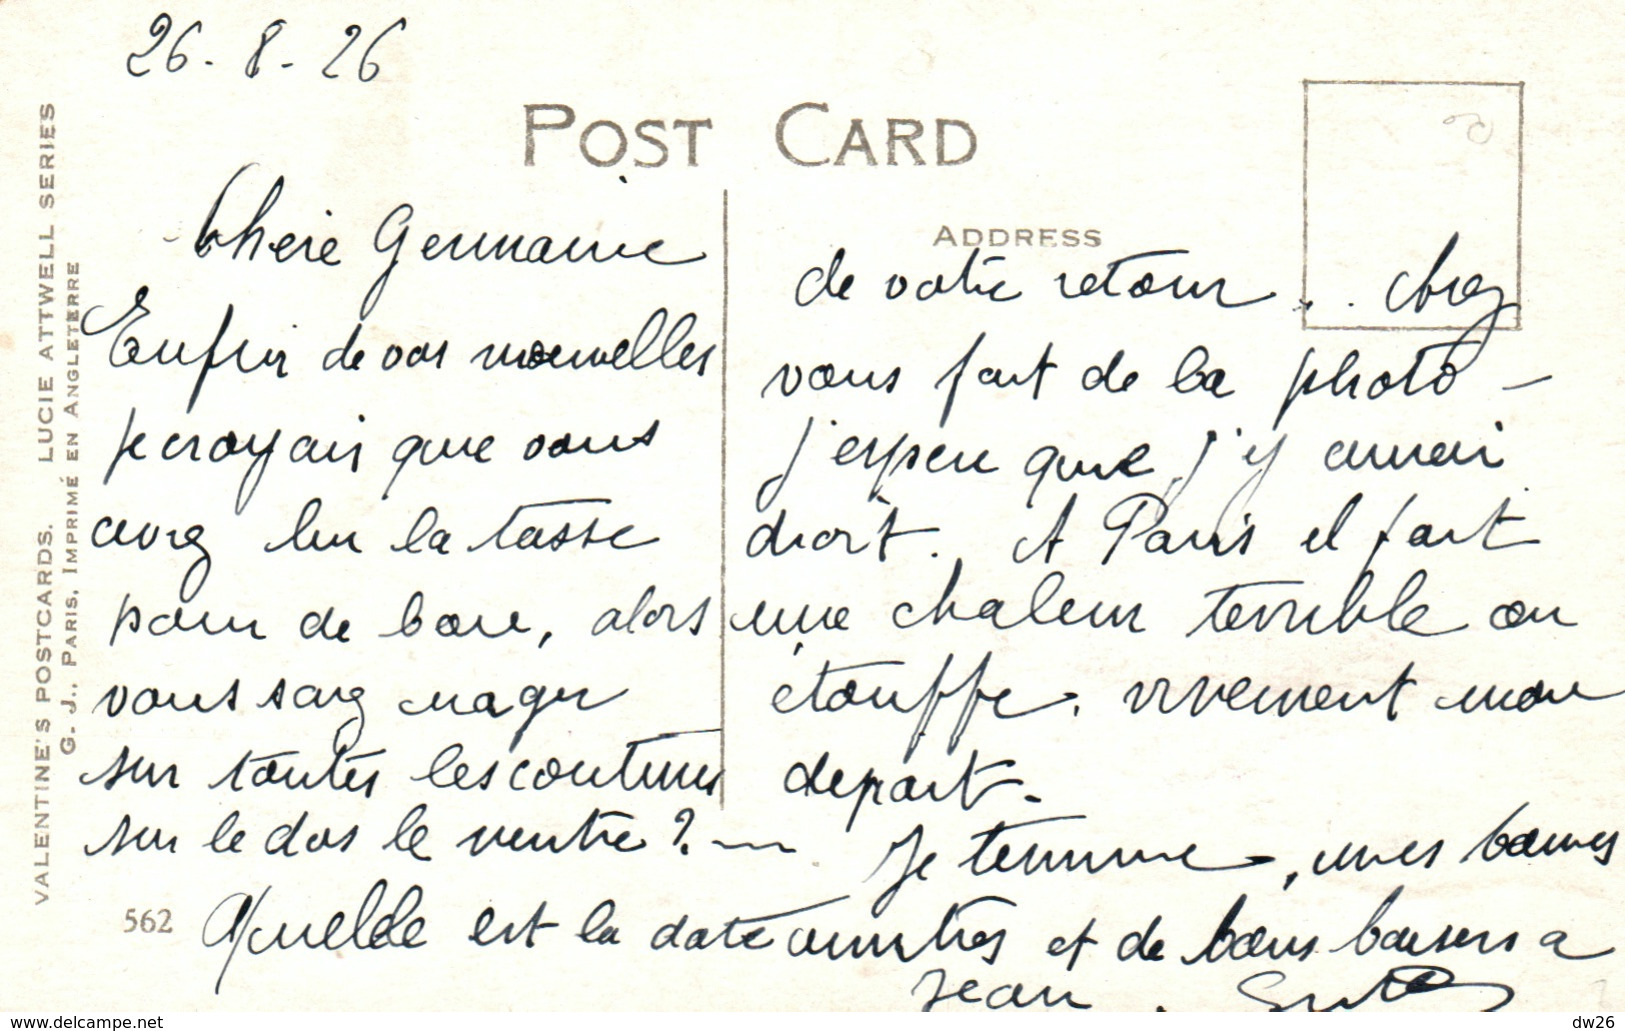 26-8-26
POST CARD
VALENTINE'S POSTCARDS. LUCIE ATTWELL SERIES
G. J., PARIS, IMPRIMÉ EN ANGLETERRE
Chère Germaine
Enfin de vos nouvelles
je croyais que vous
avez bu la tasse
pour de bon, alors
vous savez nager
sur toutes les coutures
sur le dos le ventre ? —
562
Quelle est la date
ADDRESS
de votre retour .. Avez
vous fait de la photo -
j'espère que j'y aurai
droit. A Paris il fait
une chaleur terrible on
étouffe. vivement mon
depart.
Je termine, mes bonnes
amitiés et de bons baisers a
Jean.
delcampe.net
dw26